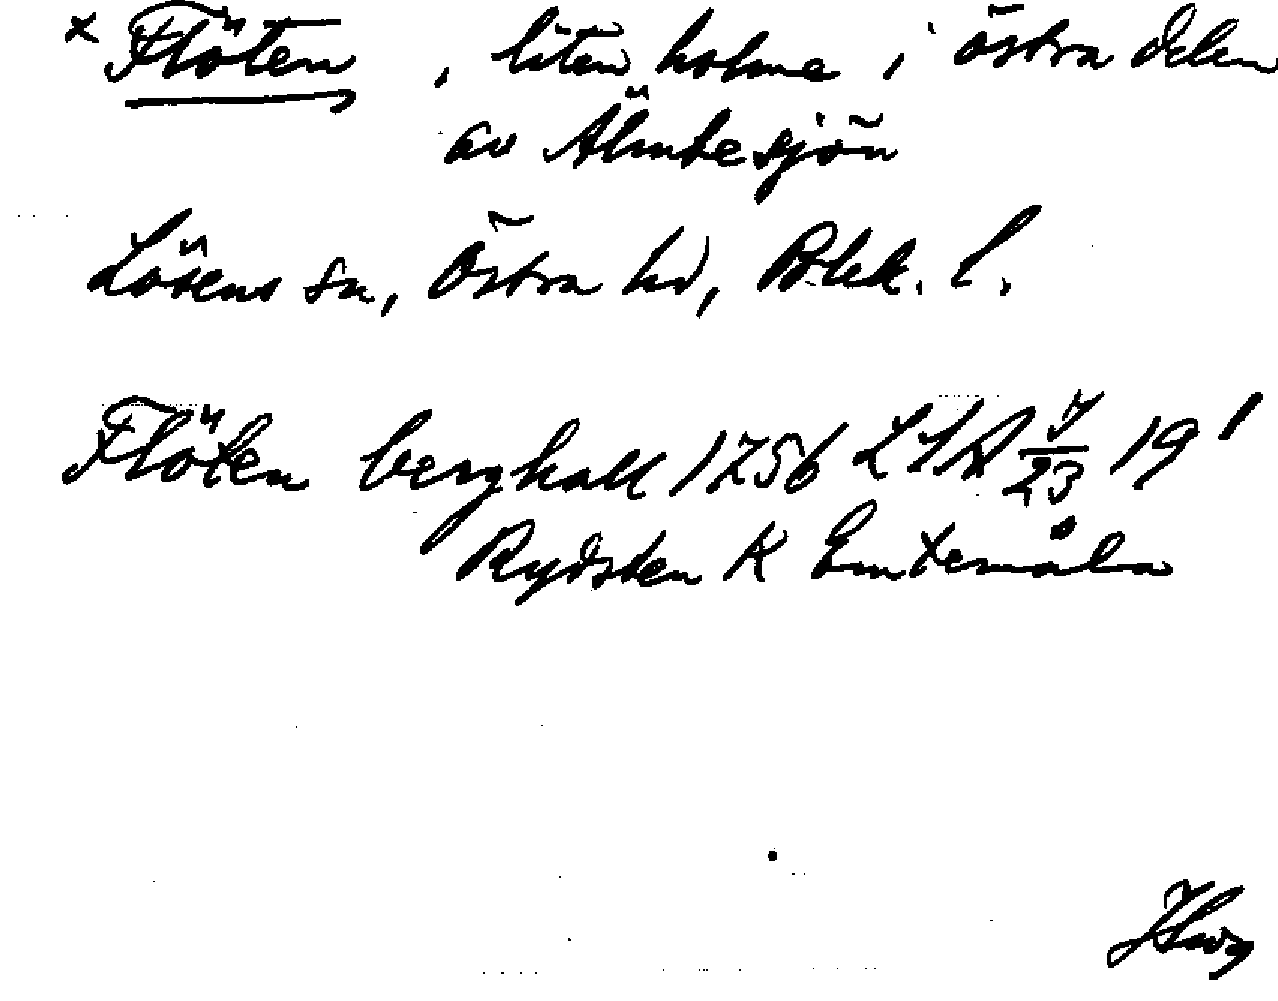 × Flöten, liten holme i östra delen
av Älmtesjön
Lösens sn, Östra hd, Blek. l.
Flöten berghall 1756 LSA 23 19
Rydsten K Emtemåla